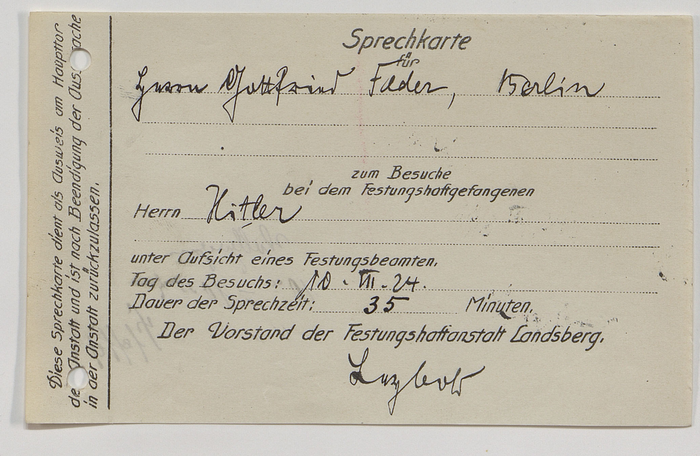 Sprechkarte
für
Herrn Gottfried Feder, Berlin
zum Besuche
bei dem Festungshaftgefangenen
Herrn Hitler
unter Aufsicht eines Festungsbeamten.
Tag des Besuchs: 10. VII. 24.
Dauer der Sprechzeit: 35 Minuten.
Der Vorstand der Festungshaftanstalt Landsberg.
Diese Sprechkarte dient als Ausweis am Haupttor
der Anstalt und ist nach Beendigung der Aussprache
in der Anstalt zurückzulassen.